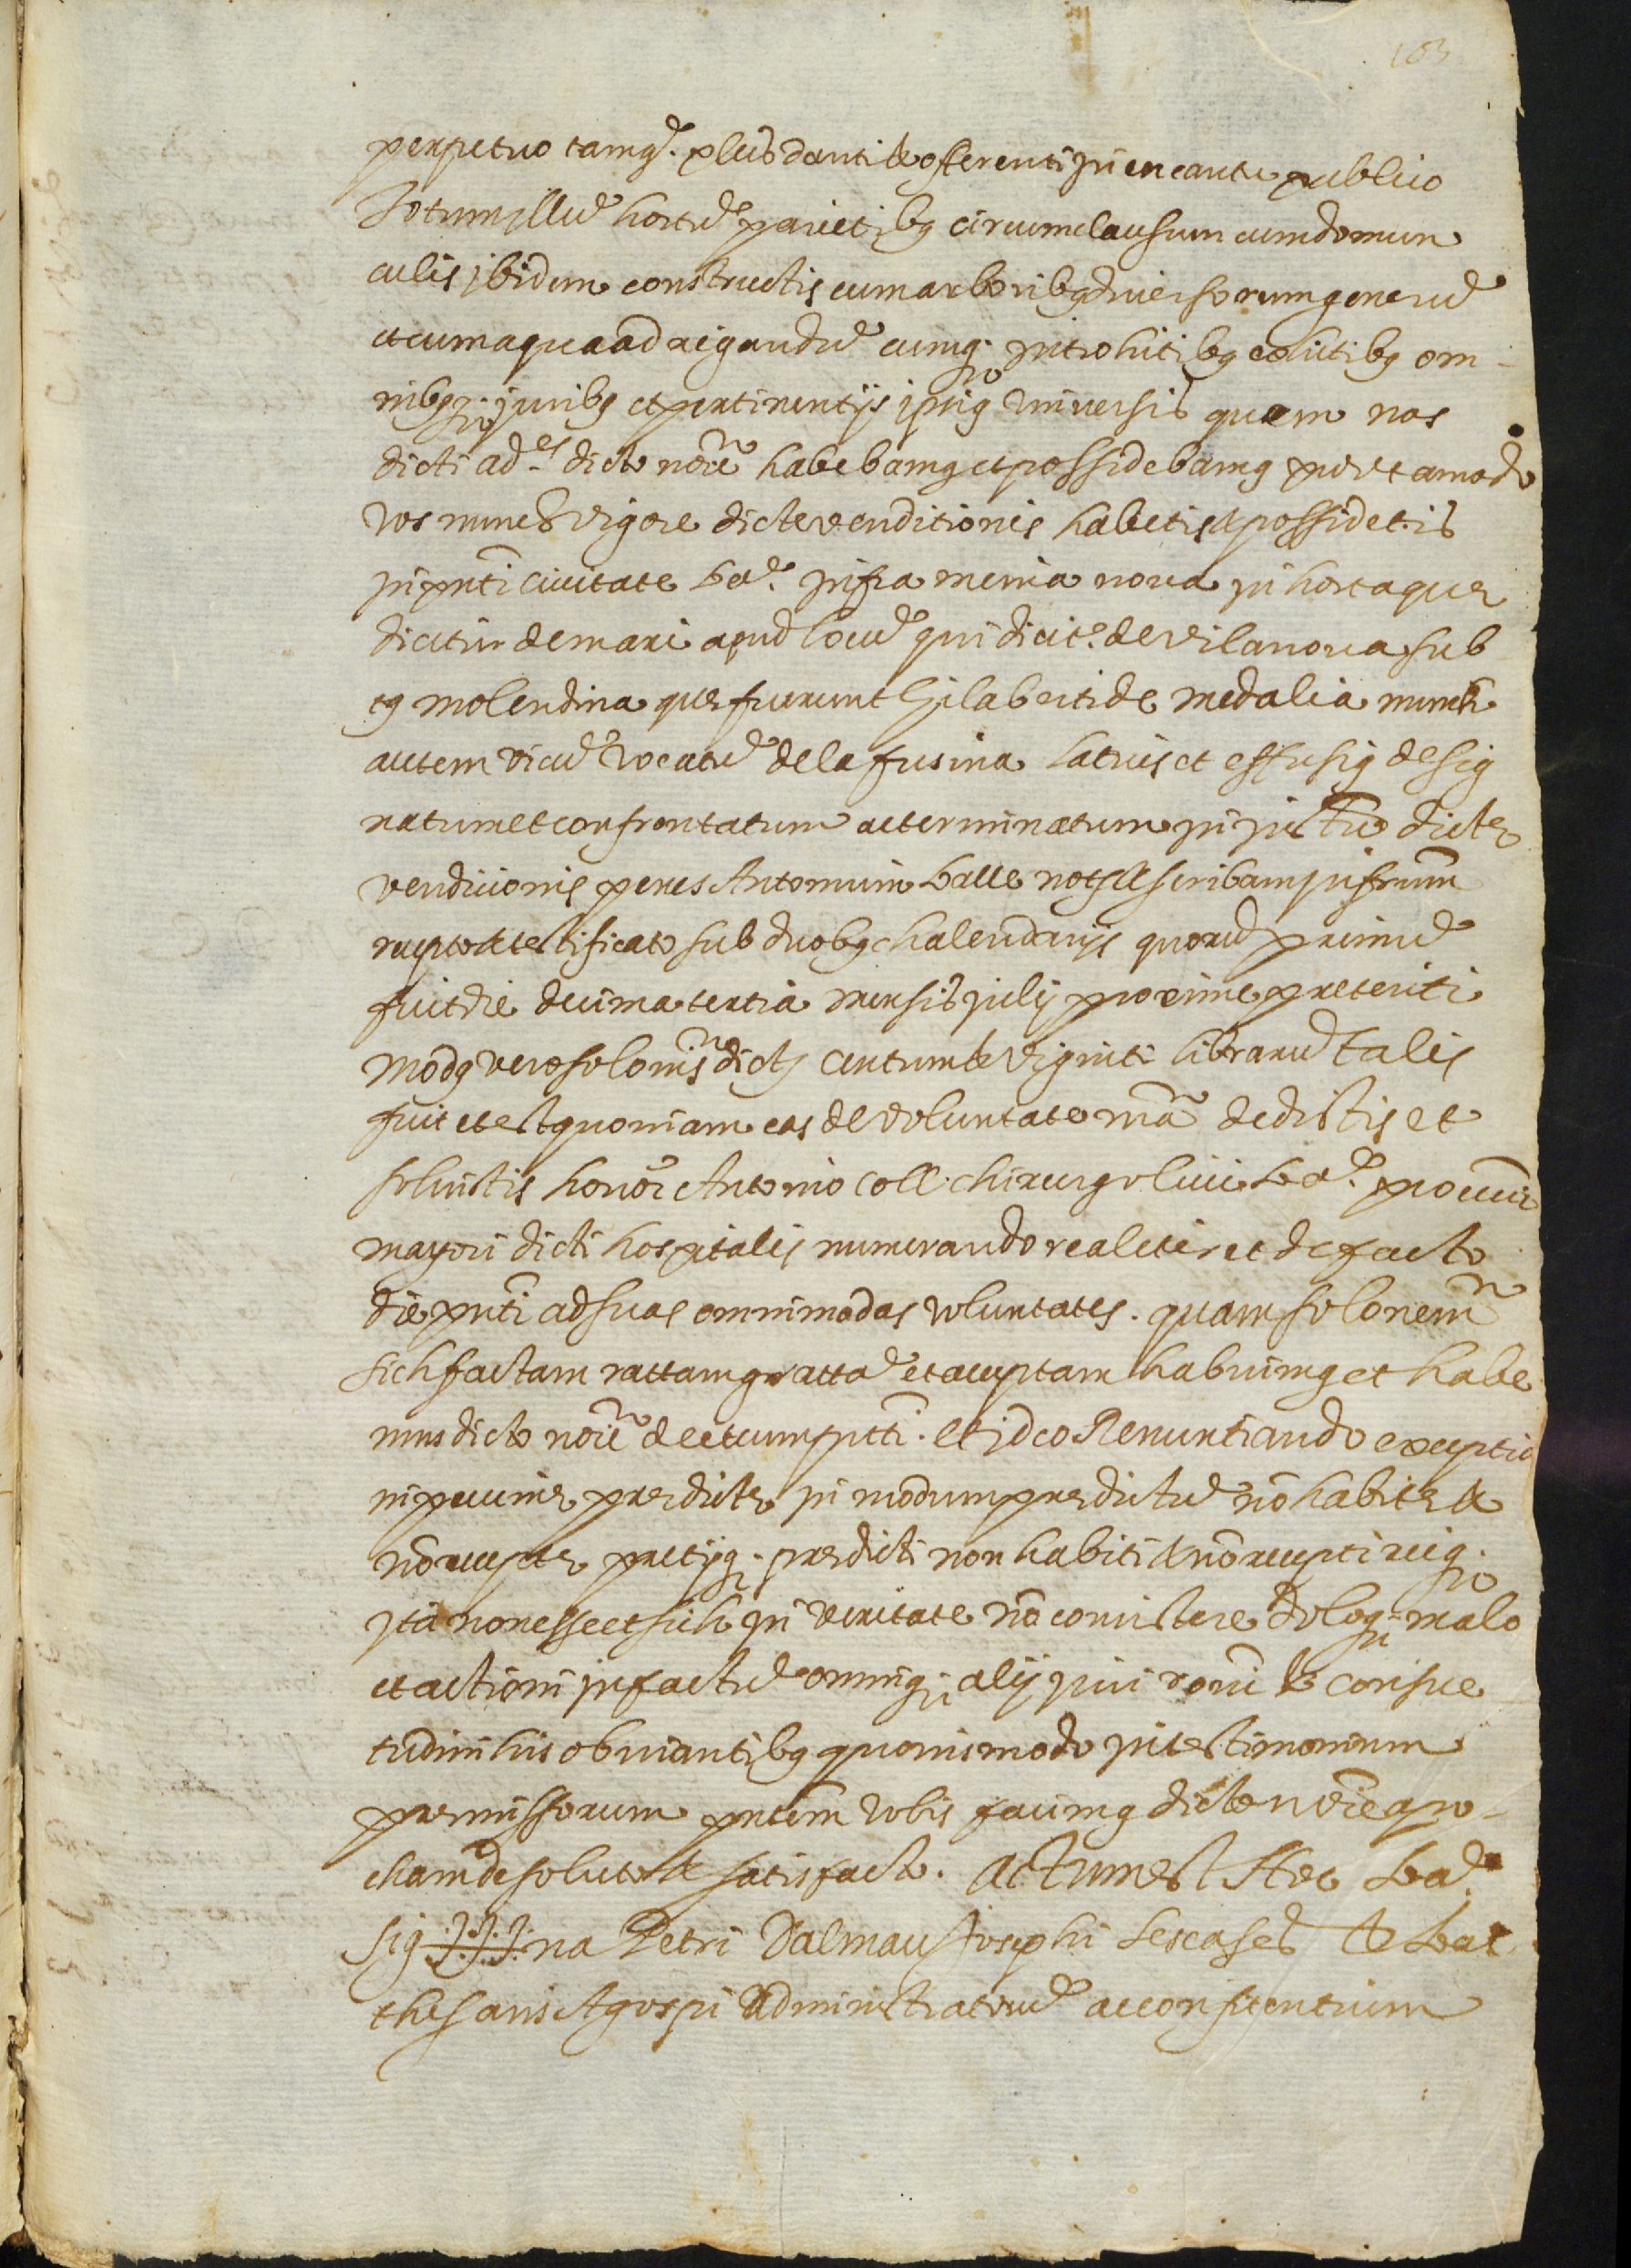 103
perpetuo tamq̃. plus danti & offerenti in encantu publico
Totum illud hortũ parietibq circumclausum cum domun
culis ibidem constructis cum arboribq diversorum generũ
et cum aqua ad rigandũ cumq. introhitibq exhitibq om-
nibq. juribq et pertinentijs ipsiq universis quem nos
dicti ad.es dicto noĩe habebamq et possidebamq pro et amodo
vos nunch vigore dicte venditionis habetis & possidetis
in pñti civitate Bar.e infra menia nova in horta que
dicitur de mari apud locũ qui dicit.r de Vilanova sub
tq molendina que fuerunt Gilaberti de medalia nunch
autem vicũ vocatũ de la fusina latius et effusiq desig
natum et confrontatum ac terminatum in instr̃o dicte
vendicionis penes Antonium Batlle not. & scribam infrum
recepto & testificato sub duobq chalendarijs quorũ primũ
fuit die decima tertia mensis julij proxime preteriti
Modq vero solonis dictz centum & viginti librarũ talis
fuit et est quoniam eas de voluntate nr̃a dedistis et
solvistis honor. Antonio Coll chirurgo civi Bar.e procuri
mayori dicti hospitalis numerando realiter et de facto
die pñti ad suas omnimodas voluntates. quam solonem
sich factam rattam grattã et acceptam habuimq et habe
mus dicto noĩe de et cum pñti. et ideo Renuntiando exceptio
ni pecunie predicte in modum predictũ nõ habite &
nõ recepte pretijq. predicti non habiti & nõ recepti reiq.
ita non esse et sich in veritate nõ consistere doloq. malo
et actioni in factũ omniq. alij juri rõni & consue
tudini his obviantibq quovismodo in testimonium
premissorum pñtem vobis facimq dicto noĩe apo-
cham de soluto & satisfacto. Actum est hec Bar.e
Sig-///-na Petri Dalmau Josephi Lescases & Bar
thesaris Agospi Administratorũ ac confitentium